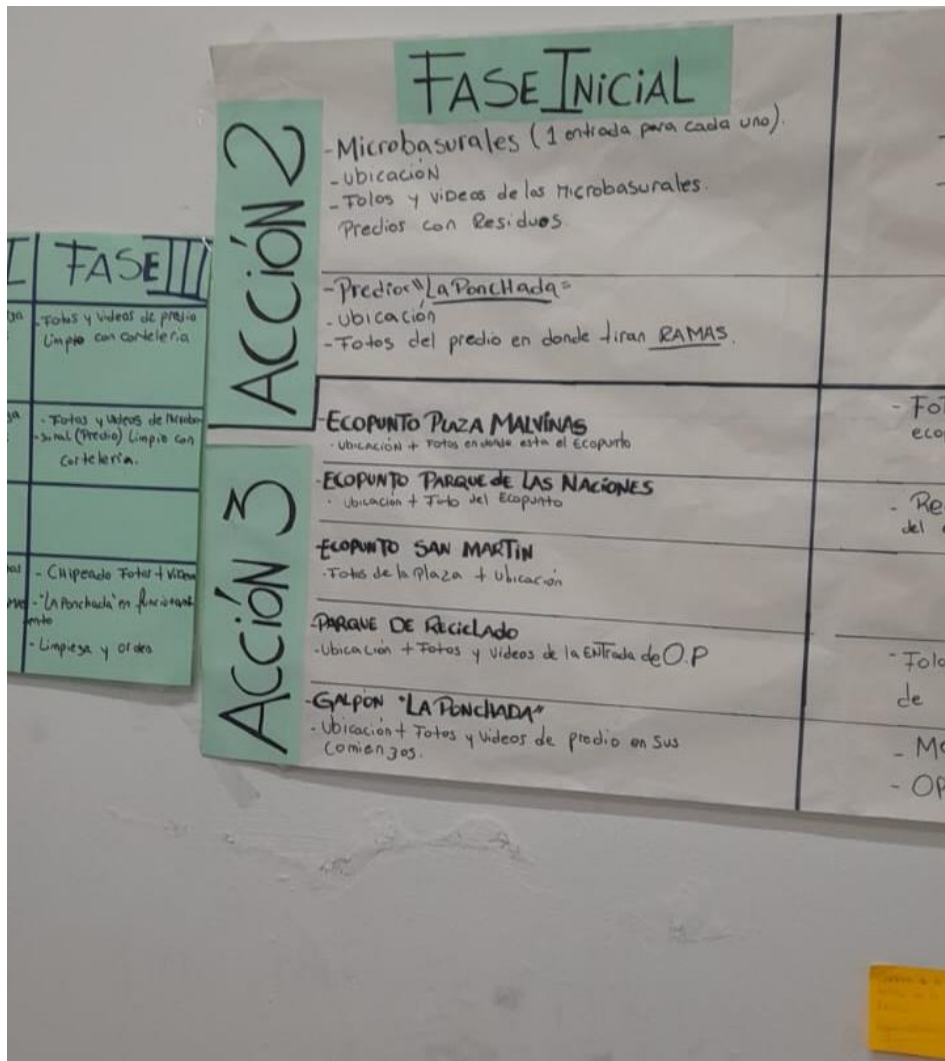 FASE III
- Fotos y videos de predio
Limpio con cartelería
- Fotos y videos de Microba-
-sural (Predio) Limpio con
cartelería.
- CHipeado Fotos + Videos
- "La Ponchada" en funcionami
ento
- Limpieza y orden
FASE INiCiAL
ACCiÓN 2
- Microbasurales (1 entrada para cada uno).
- Ubicación
- Fotos y viDeos de los Microbasurales.
Predios con Residuos.
- Predio "La PoncHada"
- Ubicación
- Fotos del predio en donde tiran RAMAS.
ACCiÓN 3
- ECOPUNTO PLAZA MALVINAS
- Ubicación + Fotos en donde esta el Ecopunto
- ECOPUNTO PARQUE de LAS NACiONES
- Ubicación + Foto del Ecopunto
- ECOPUNTO SAN MARTIN
- Fotos de la Plaza + Ubicación
- PARQUE DE RECiCLADO
- Ubicación + Fotos y Videos de la ENTrada de O.P
- GALPON "LA PONCHADA"
- Ubicación + Fotos y Videos de predio en Sus
Comienzos.
de
- OP